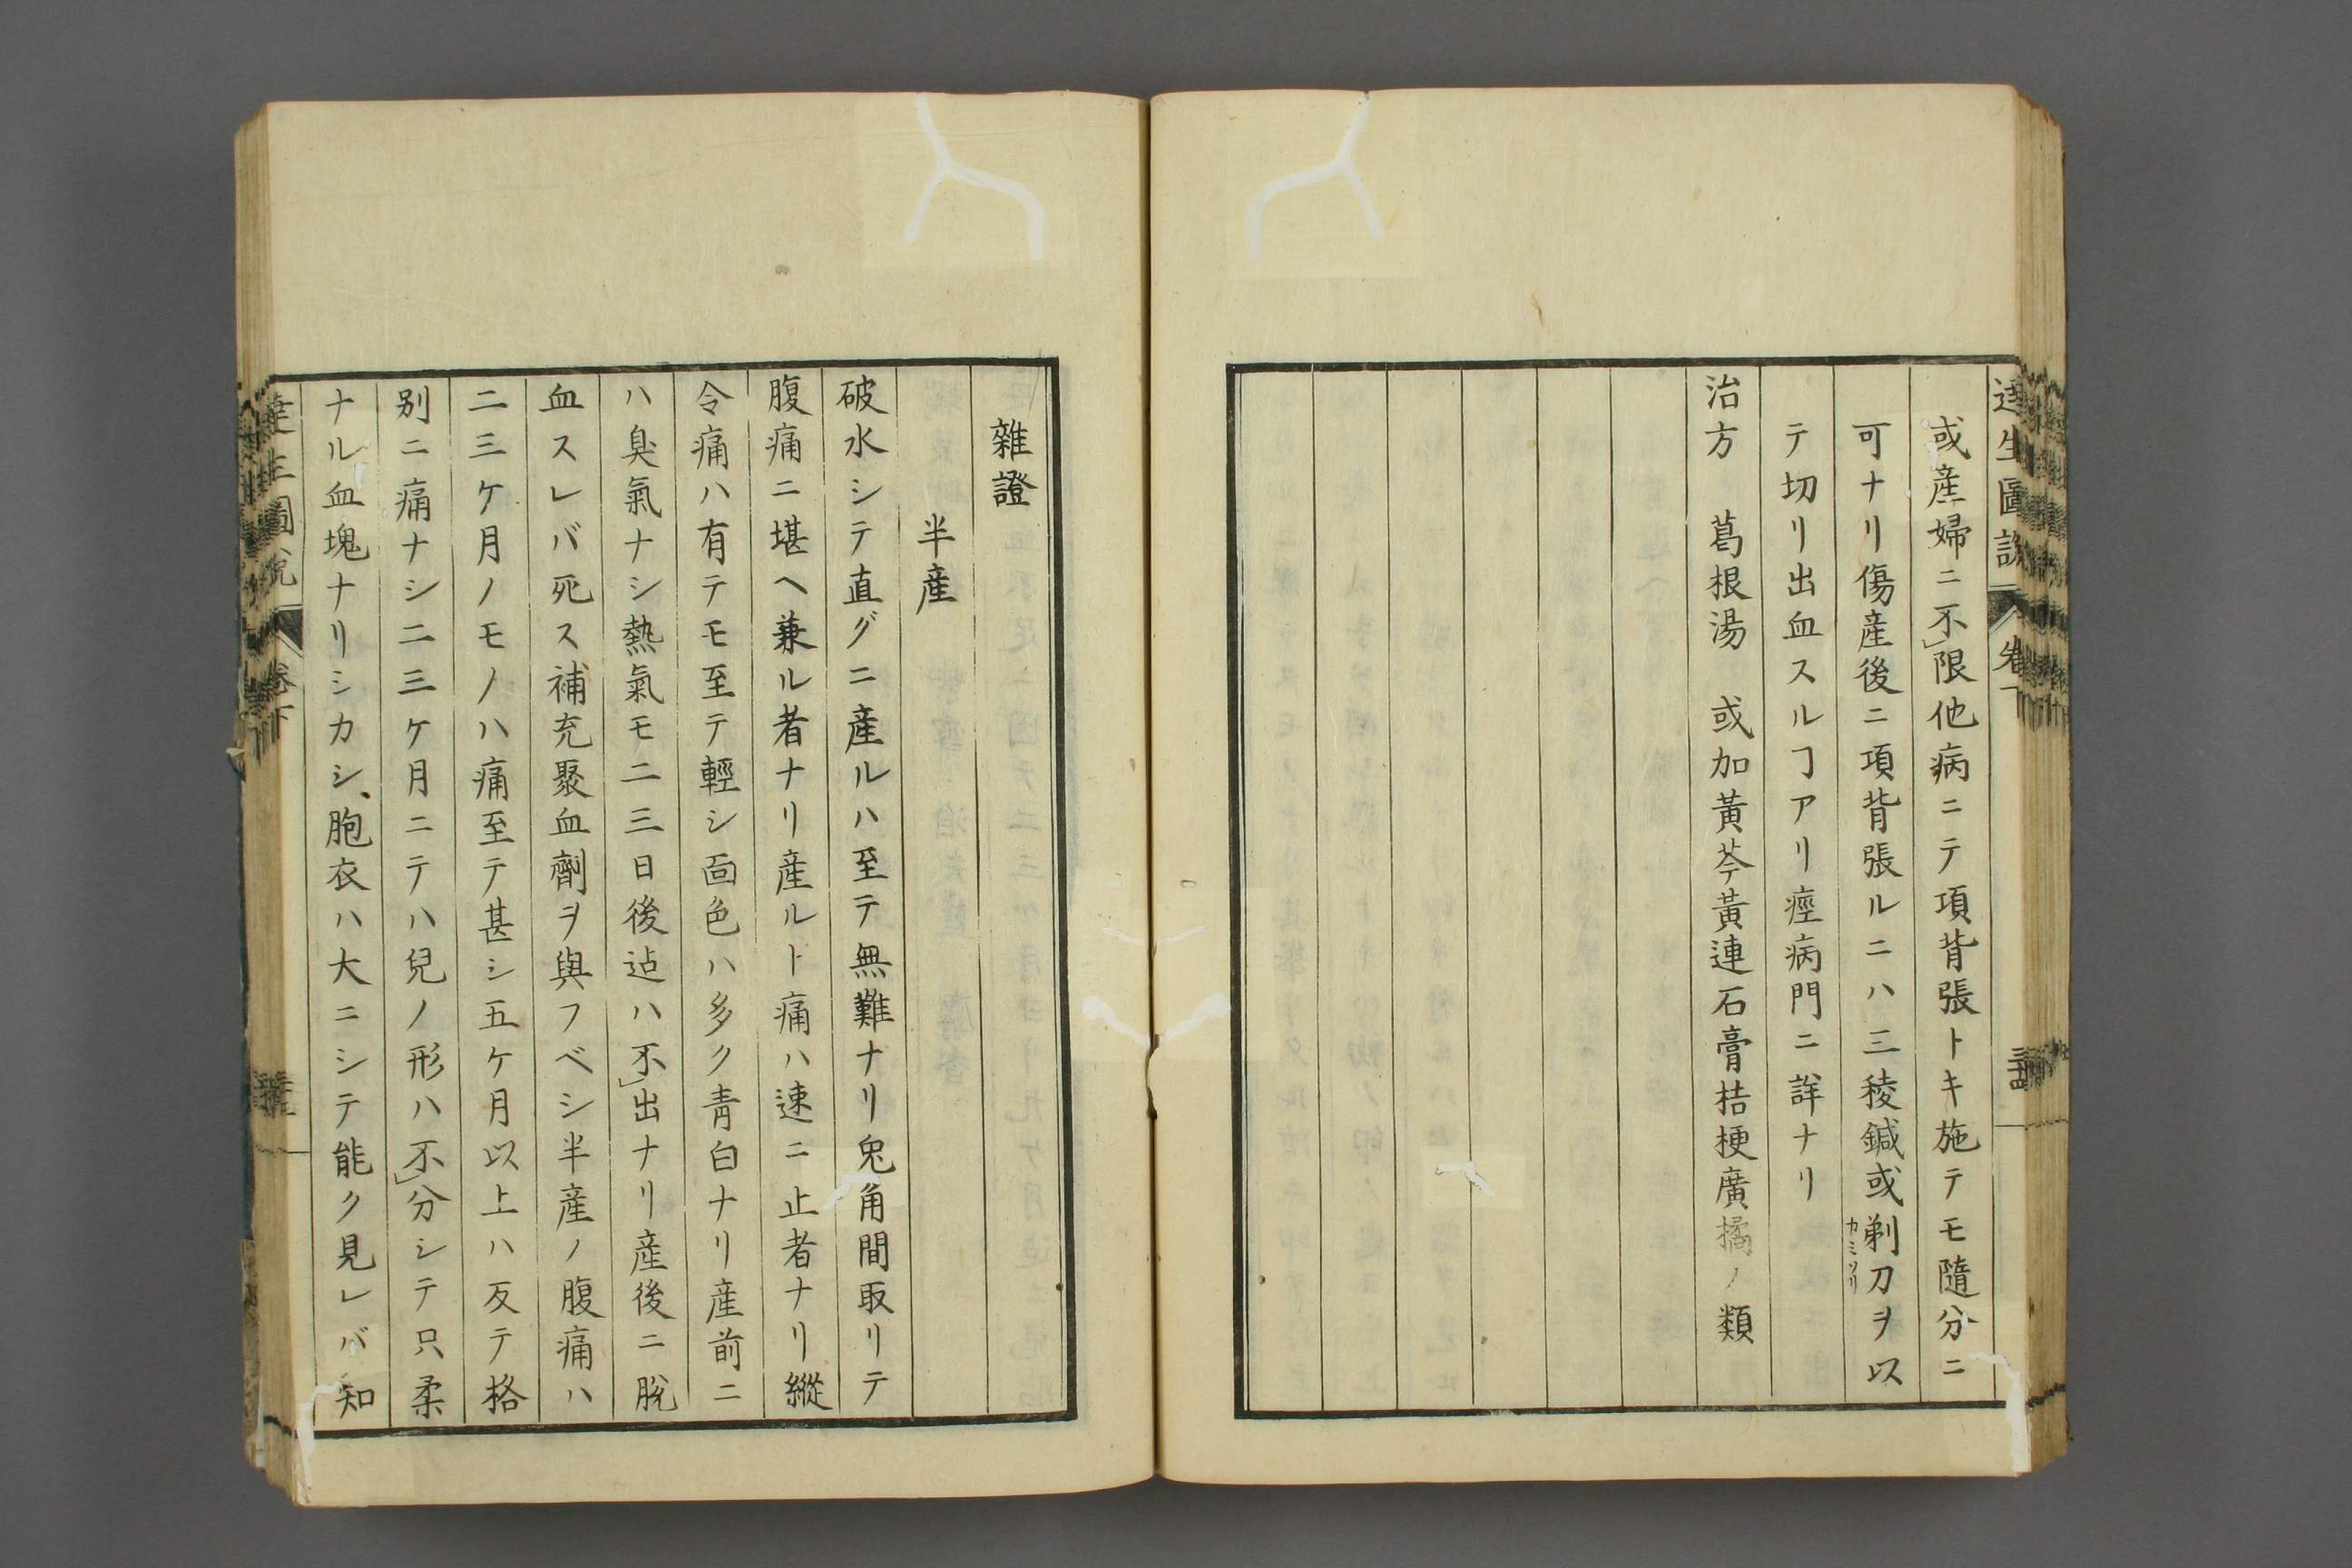 達生圖説 卷下
或産婦ニ不限他病ニテ項背張トキ施テモ隨分ニ
可ナリ傷産後ニ項背張ルニハ三稜鍼或剃刀ヲ以
カミソリ
テ切リ出血スルヿアリ痙病門ニ詳ナリ
治方 葛根湯 或加黃芩黃連石膏桔梗廣橘ノ類
雜證
半産
破水シテ直グニ産ルハ至テ無難ナリ兔角間取リテ
腹痛ニ堪ヘ兼ル者ナリ産ルト痛ハ速ニ止者ナリ縱
令痛ハ有テモ至テ輕シ面色ハ多ク青白ナリ産前ニ
ハ臭氣ナシ熱氣モ二三日後迠ハ不出ナリ産後ニ脫
血スレバ死ス補充聚血劑ヲ與フベシ半産ノ腹痛ハ
二三ケ月ノモノハ痛至テ甚シ五ケ月以上ハ反テ格
別ニ痛ナシ二三ケ月ニテハ兒ノ形ハ不分シテ只柔
ナル血塊ナリシカシ、胞衣ハ大ニシテ能ク見レバ知
達生圖説 卷下